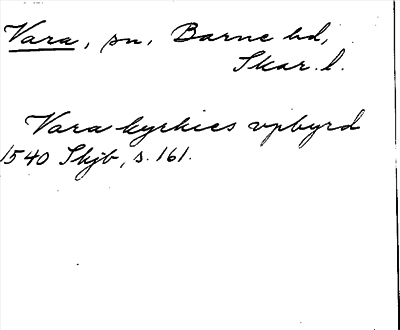 Vara, sn, Barne hd,
Skar. l.
Vara kyrkies vpbyrd
1540 Skjb, s. 161.